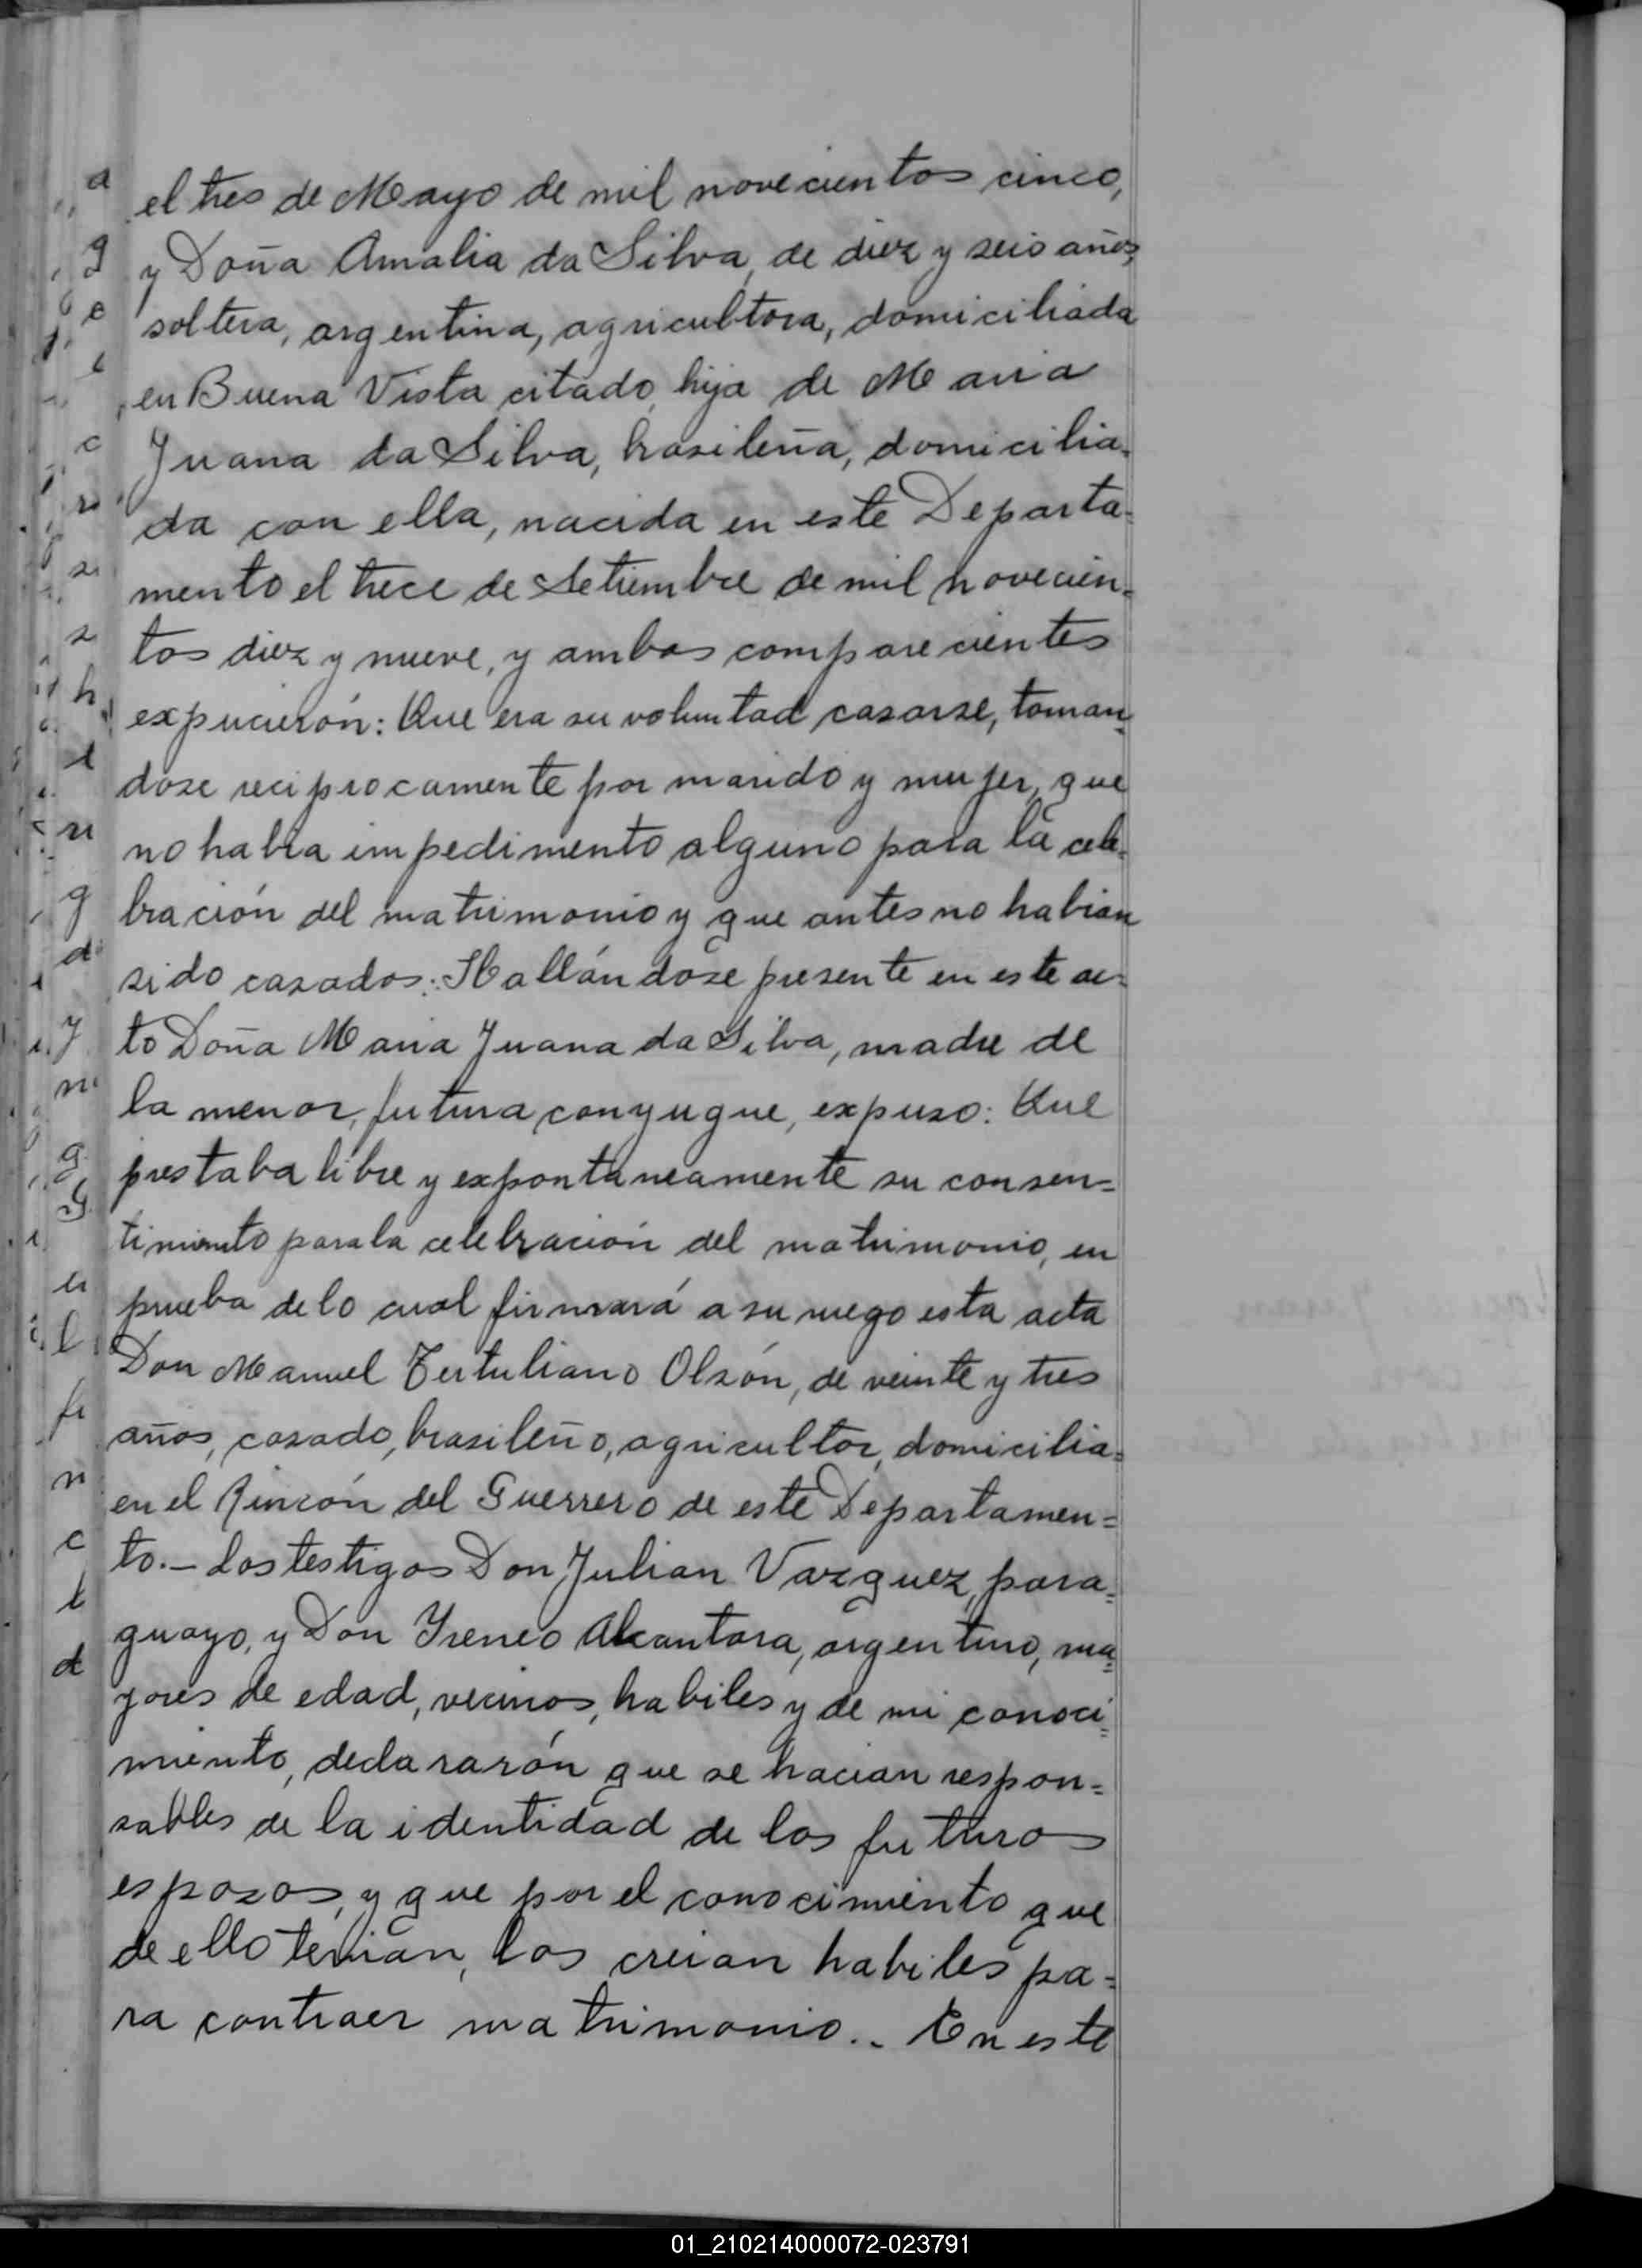 el tres de Mayo de mil novecientos cinco,
y Doña Amalia da Silva, de diez y seis años,
soltera, argentina, agricultora, domiciliada
en Buena Vista citado, hija de Maria
Juana da Silva, brasileña, domicilia-
da con ella, nacida en este Departa-
mento el trece de Setiembre de mil novecien-
tos diez y nueve, y ambos comparecientes
expucierón: Que era su voluntad casarse, toman-
dose reciprocamente por marido y mujer, que
no habia impedimento alguno para la cele-
bración del matrimonio y que antes no habian
sido casados: Hallándose presente en este ac-
to Doña Maria Juana da Silva, madre de
la menor, futura conyugue, expuso: Que
prestaba libre y expontaneamente su consen=
timiento para la celebración del matrimonio, en
prueba de lo cual firmará a su ruego esta acta
Don Manuel Tertuliano Olsón, de veinte y tres
años, casado, brasileño, agricultor, domicilia=
en el Rincón del Guerrero de este Departamen=
to.- Los testigos Don Julian Vazquez, para=
guayo, y Don Ireneo Alcantara, argentino, ma=
yores de edad, vecinos, habiles y de mi conoci=
miento, declararón que se hacian respon=
sables de la identidad de los futuros
esposos, y que por el conocimiento que
de ello tenian, los creian habiles pa=
ra contraer matrimonio.- En este
01_210214000072-023791